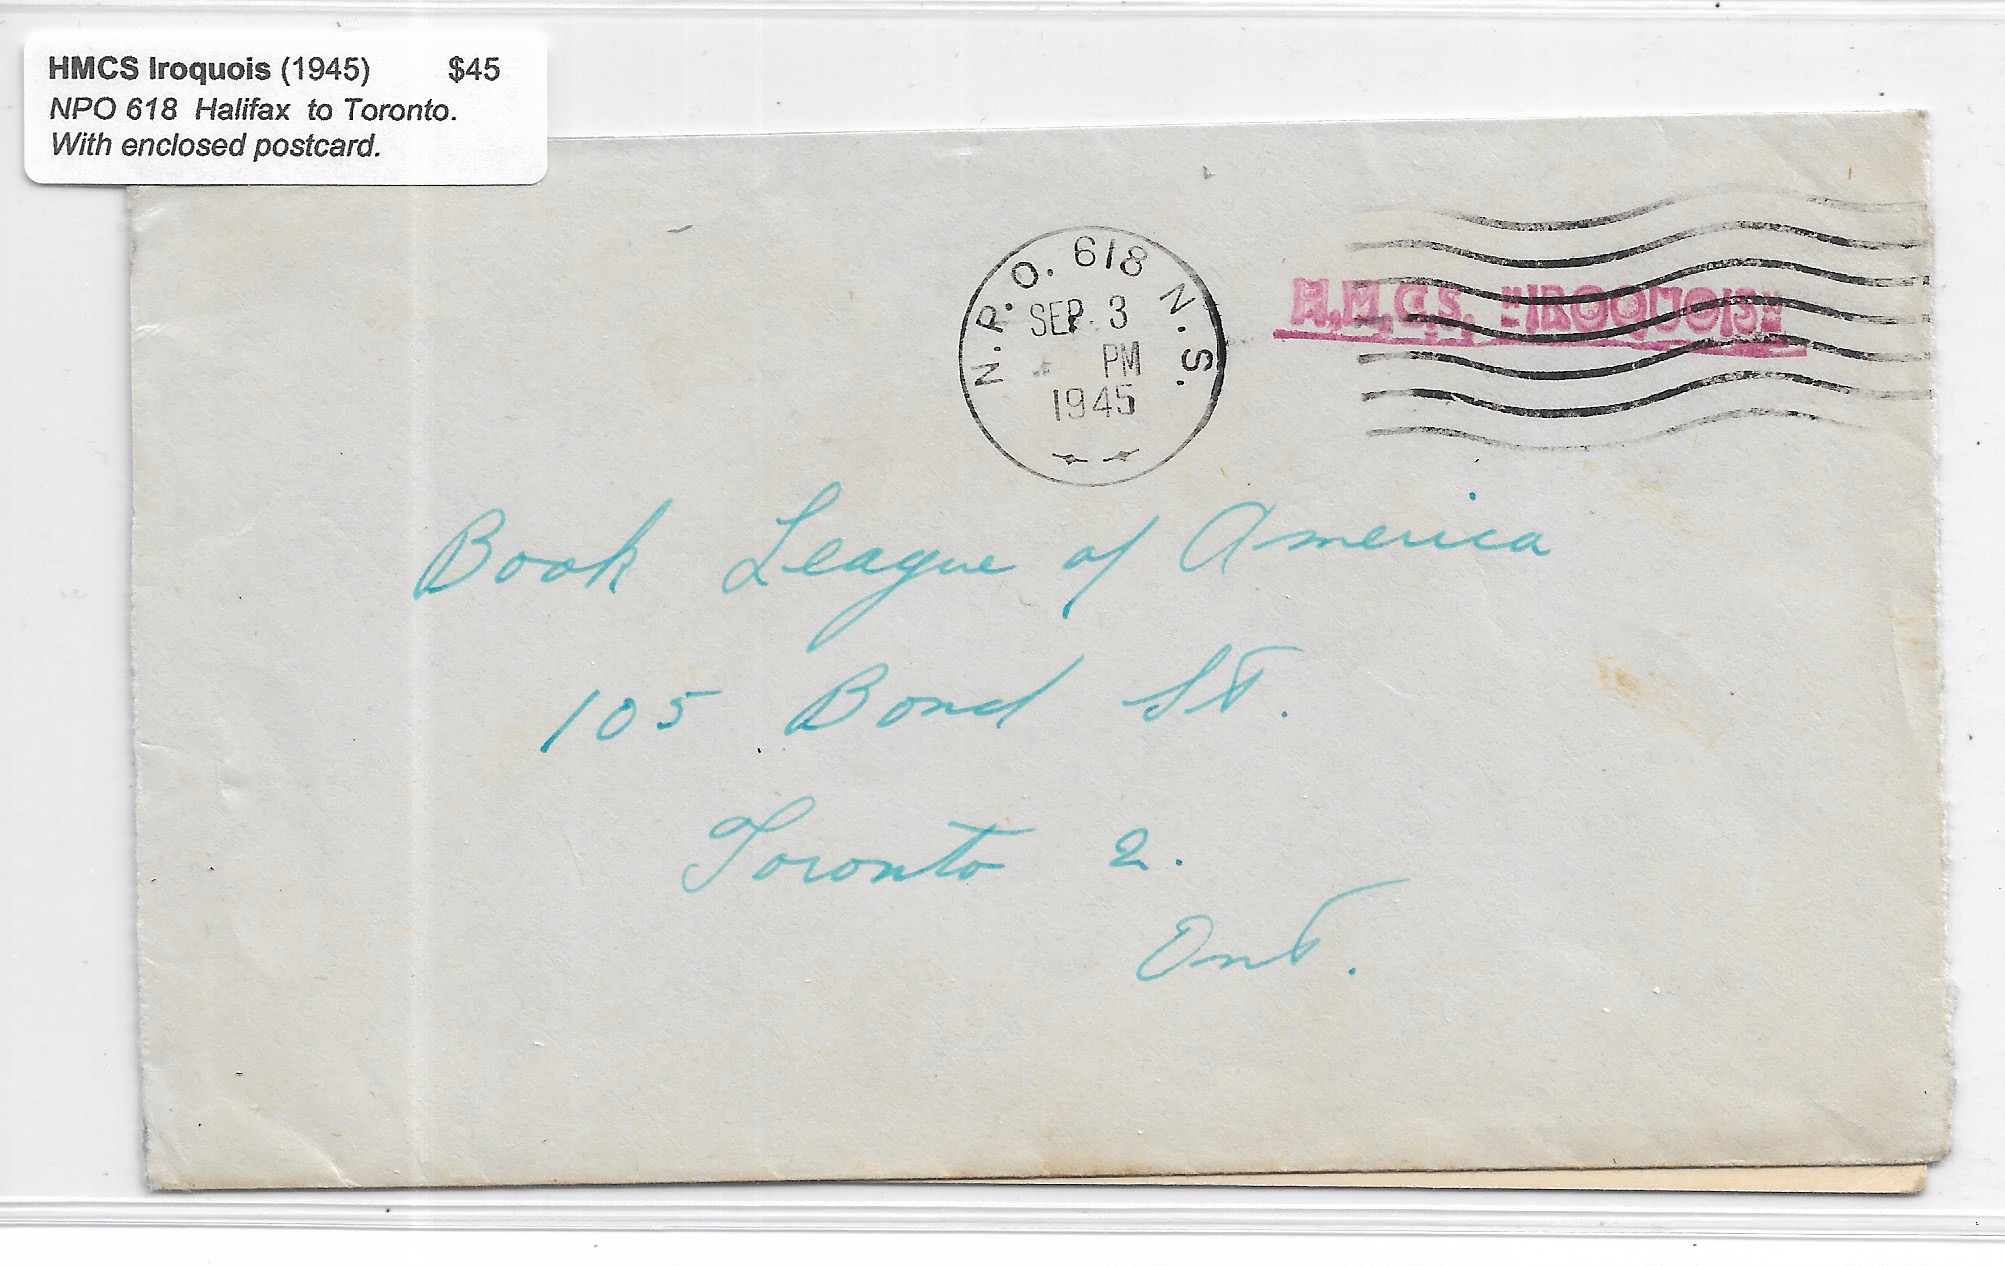 HMCS Iroquois (1945) $45
NPO 618 Halifax to Toronto.
With enclosed postcard.
N.P.O. 618 N.S.
SEP 3
PM
1945
H.M.C.S. "IROQUOIS"
Book League of America
105 Bond St.
Toronto 2.
Ont.